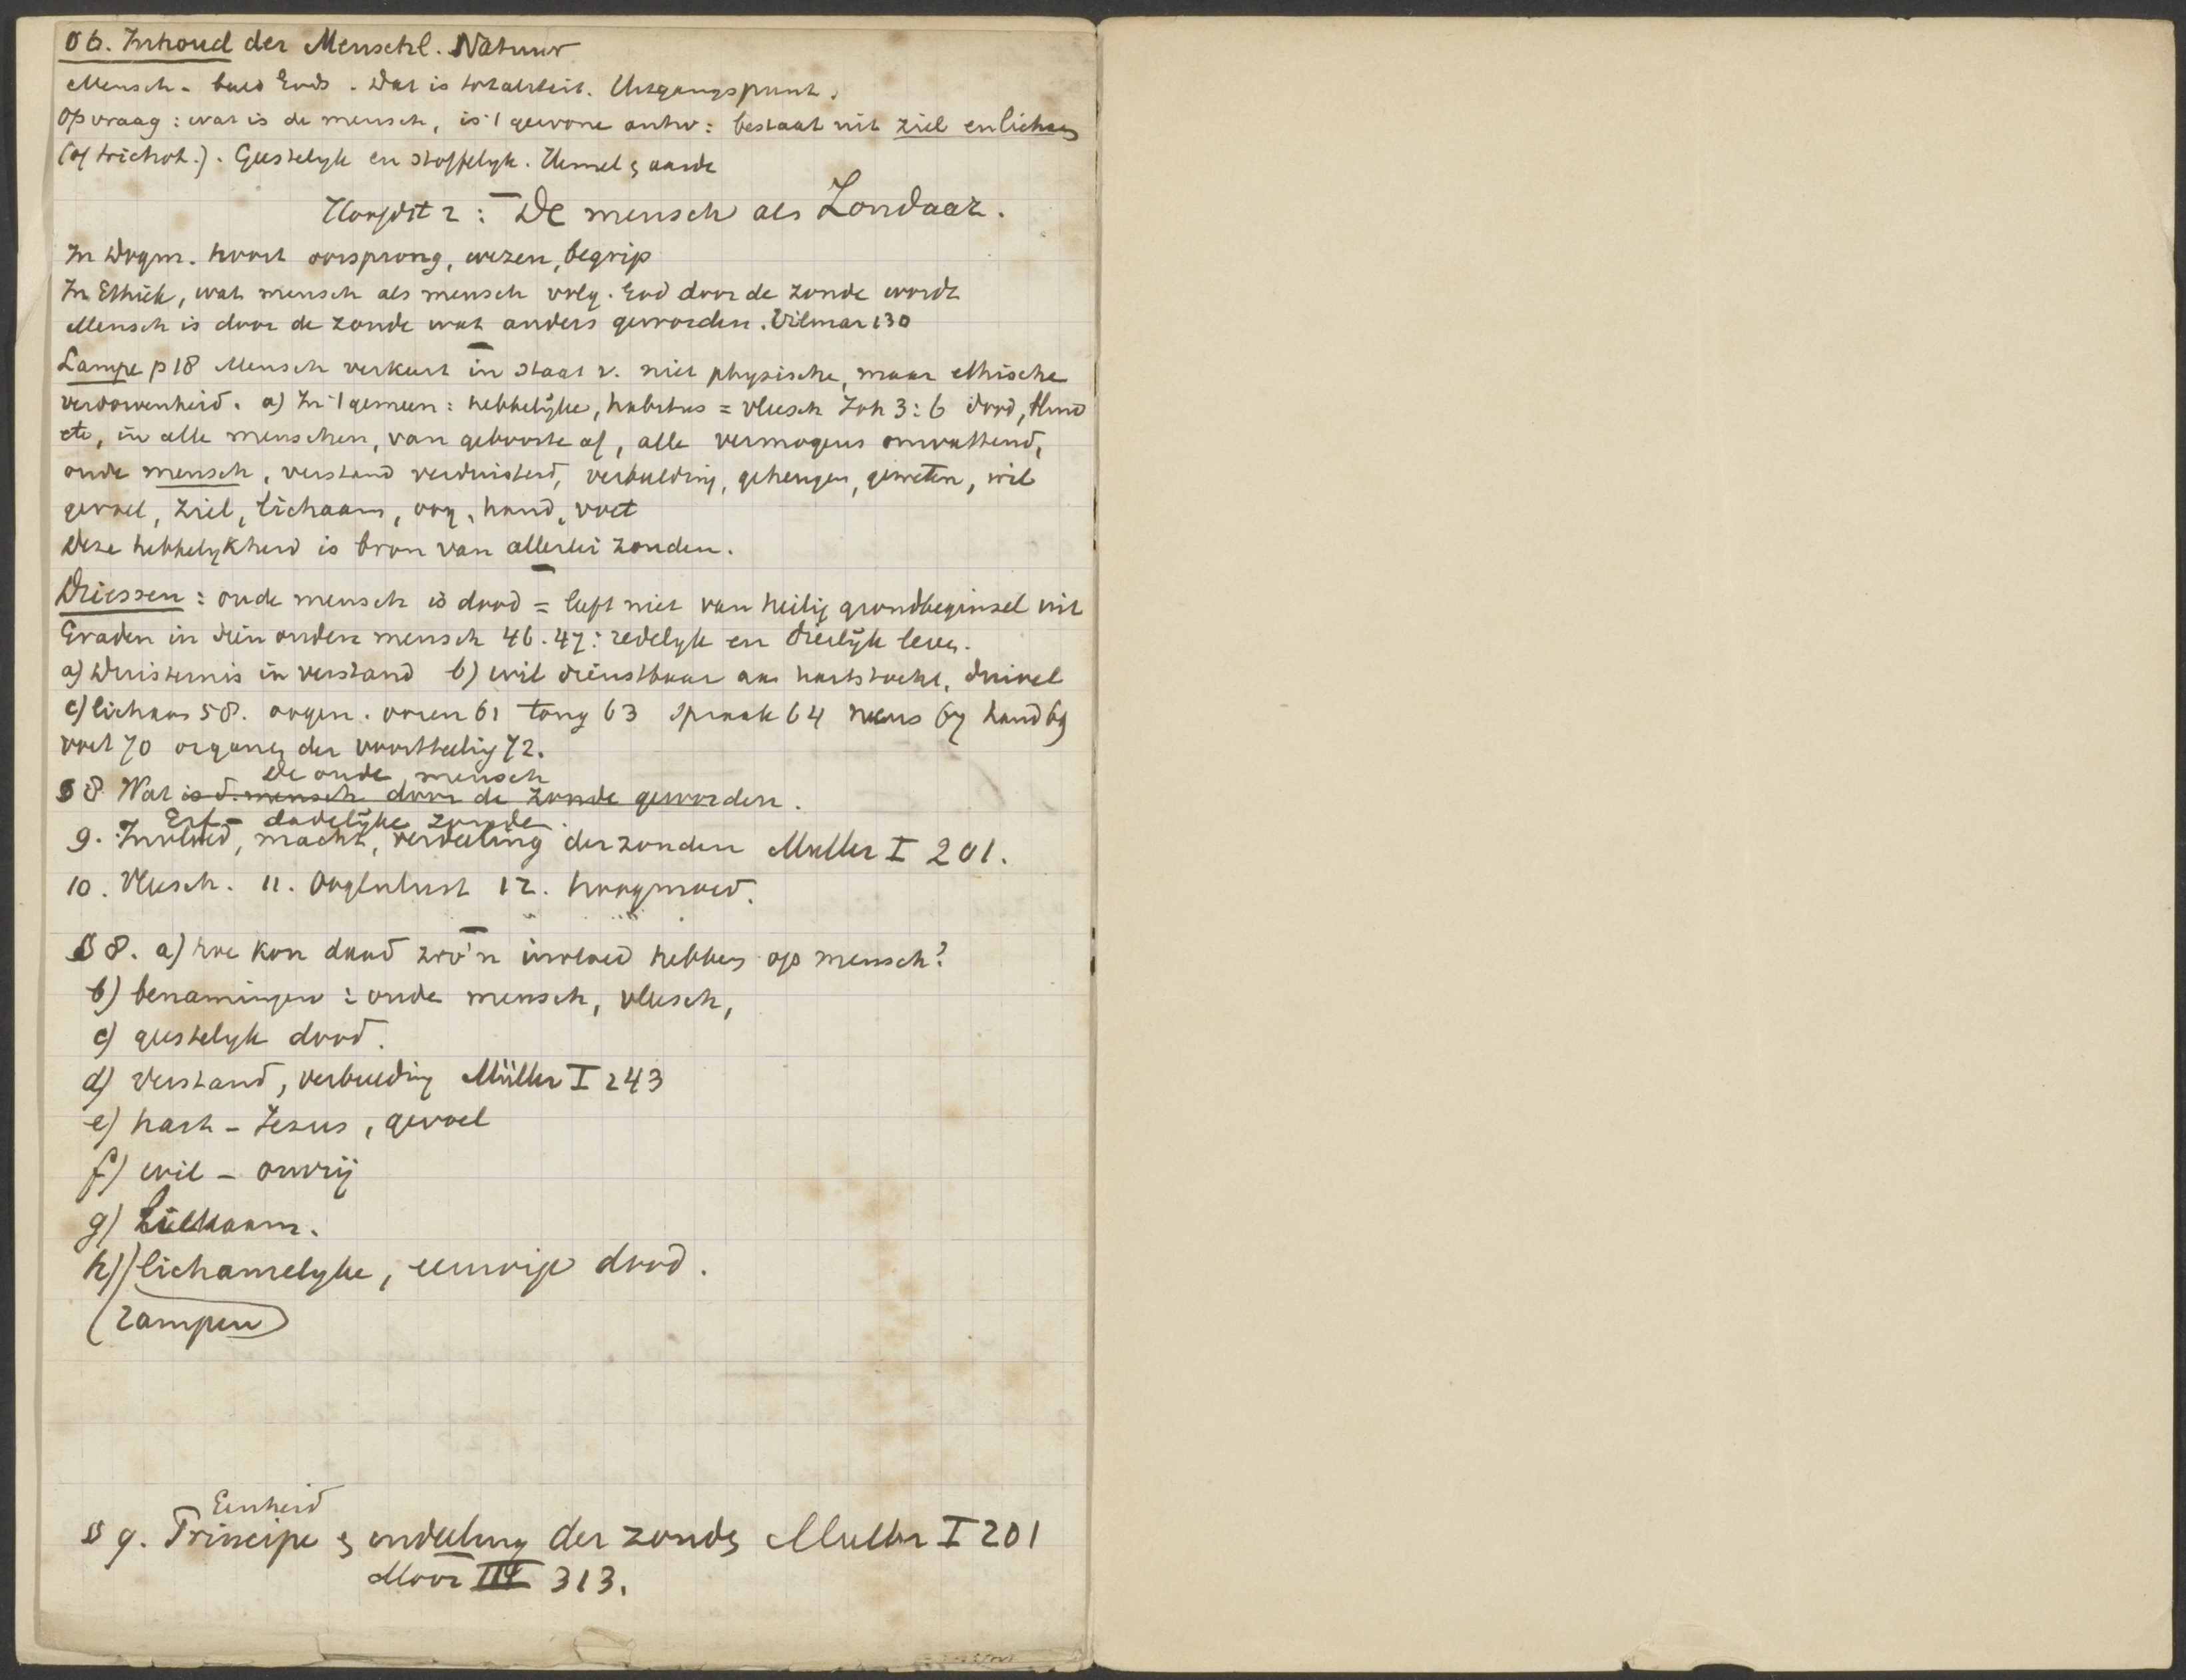 § 6. Inhoud der Menschl. Natuur
Mensch - beeld Gods. Dat is totaliteit. Uitgangspunt.
Op vraag: wat is de mensch, is 't gewone antw: bestaat uit ziel en lichaam
(of trichot.). Geestelyk en stoffelyk. Hemel & aarde
Hoofdst 2: De mensch als Zondaar.
In Dogm. hoort oorsprong, wezen, begrip
In Ethiek, wat mensch als mensch door de zonde wordt
Mensch is door de zonde wat anders geworden. Vilmar 130
Lampe p 18 Mensch verkeert in staat v. niet physische, maar ethische
verdorvenheid. a) In 't gemeen: hebbelijke, habitus = vleesch Joh 3:6 dood, blind
etc, in alle menschen, van geboorte af, alle vermogens omvattend,
oude mensch, verstand verduisterd, verbeelding, geheugen, geweten, wil
gevoel, ziel, lichaam, oog, hand, voet
Deze hebbelykheid is bron van allerlei zonden.
Driessen: oude mensch is dood = leeft niet van heilig grondbeginsel uit
Graden in dien ouden mensch 46.47: redelyk en dierlijk leven.
a) Duisternis in verstand b) wil dienstbaar aan hartstocht, duivel
c) lichaam 58. oogen. ooren 61 tong 63 spraak 64 neus 67 hand 69
voet 70 organen der voortteeling 72.
De oude mensch
§ 8. Wat is d. mensch door de zonde geworden.
Erf- dadelijke zonde.
9. Invloed, macht, verdeeling der zonden Muller I 201.
10. Vleesch. 11. Oogenlust 12. hoogmoed.
§ 8. a) hoe kon daad zoo'n invloed hebben op mensch?
b) benamingen: oude mensch, vleesch,
c) geestelyk dood.
d) verstand, verbeelding Müller I 243
e) hart - Jezus, gevoel
f) wil - onvrij
g) Lichaam.
h) lichamelyke, eeuwige dood.
(rampen)
Eenheid
§ 9. Principe & indeeling der zonden Muller I 201
Moor III 313.